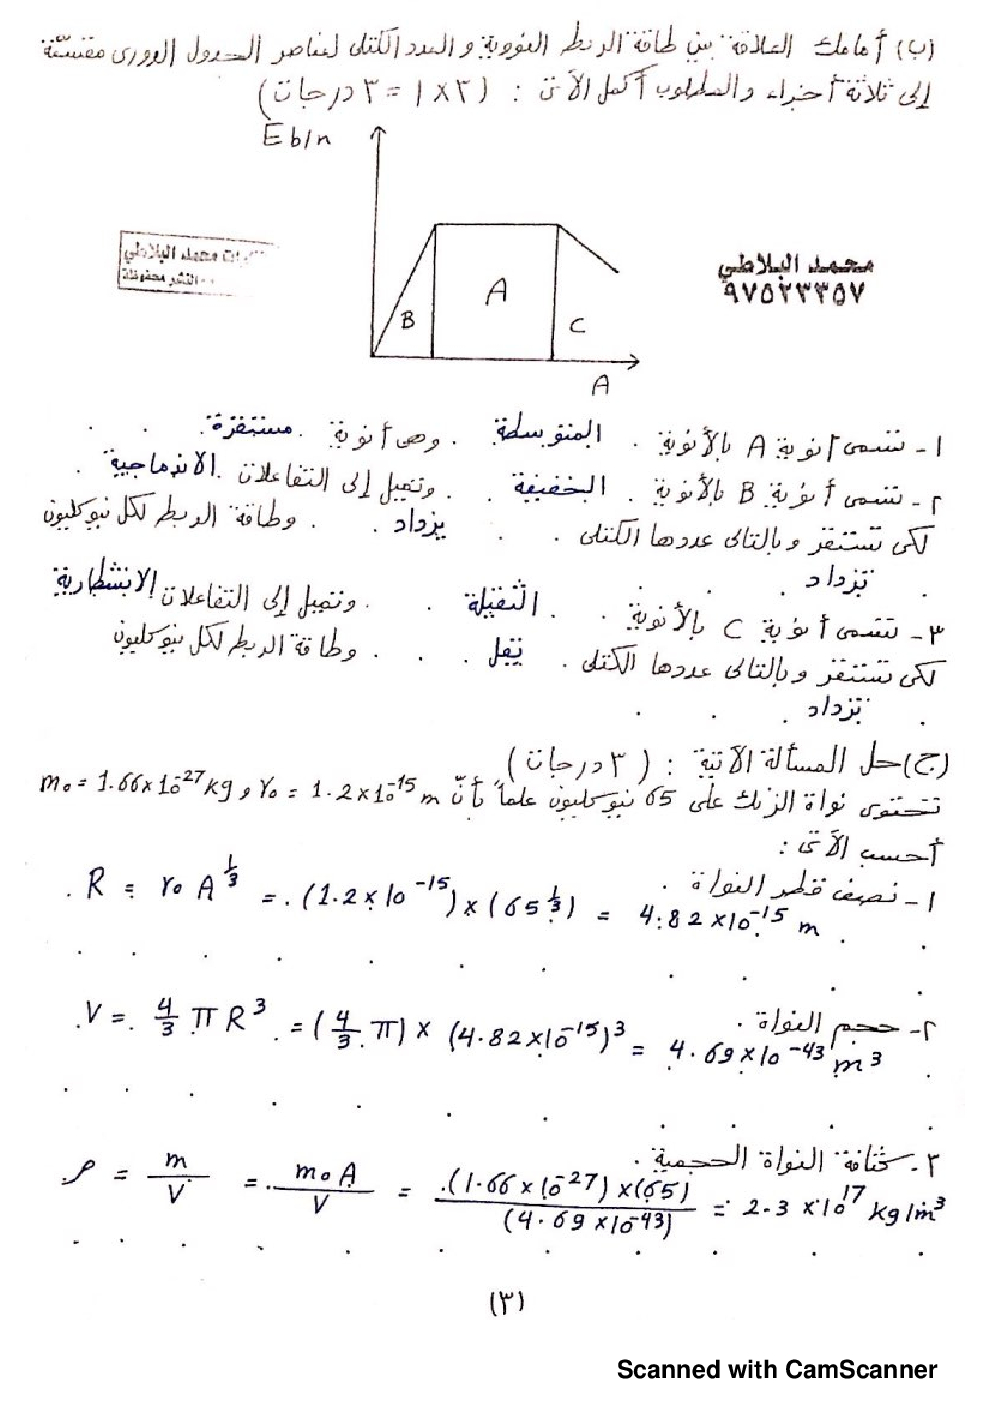 (ب) أمامك العلاقة بين طاقة الربط النووية والعدد الكتلى لعناصر الجدول الدورى مقسّمة
إلى ثلاثة أجزاء والمطلوب أكمل الآتى : (٣×١ = ٣ درجات)
Eb/n
محمد البلاطي
النشر محفوظة
محمد البلاطي
٩٧٥٢٣٣٥٧
A
B
C
A
١- تسمى أنوية A بالأنوية . المتوسطة . وهى أنوية . مستقرة .
٢- تسمى أنوية B بالأنوية . الخفيفة . وتميل إلى التفاعلات . الاندماجية .
لكى تستقر وبالتالى عددها الكتلى . يزداد . وطاقة الربط لكل نيوكليون
تزداد
٣- تسمى أنوية C بالأنوية . الثقيلة . وتميل إلى التفاعلات الانشطارية
لكى تستقر وبالتالى عددها الكتلى . يقل . وطاقة الربط لكل نيوكليون
تزداد
(ج) حل المسألة الآتية : (٣ درجات)
تحتوى نواة الزنك على 65 نيوكليون علماً بأنّ m₀ = 1.66x10⁻²⁷ kg , r₀ = 1.2x10⁻¹⁵ m
أحسب الآتى :
١- نصف قطر النواة .
R = r₀ A^⅓ = (1.2x10⁻¹⁵)x(65^⅓) = 4.82x10⁻¹⁵ m
٢- حجم النواة .
V = 4/3 π R³ = (4/3 π) x (4.82x10⁻¹⁵)³ = 4.69x10⁻⁴³ m³
٣- كثافة النواة الحجمية .
ρ = m/V = m₀A/V = (1.66x10⁻²⁷)x(65)/(4.69x10⁻⁴³) = 2.3x10¹⁷ kg/m³
(٣)
Scanned with CamScanner